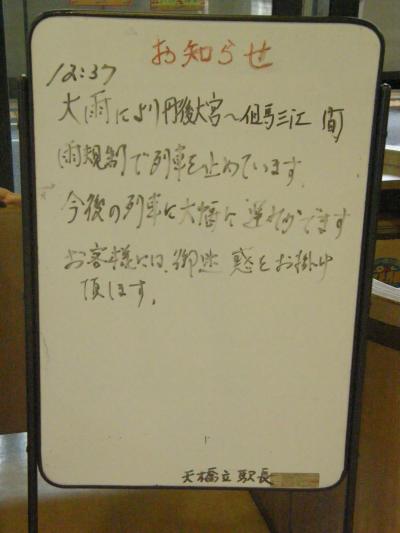 お知らせ
12:37
大雨により丹後大宮〜但馬三江 間
雨規制で列車を止めています.
今後の列車に大幅に遅れがでます
お客様には、御迷惑をお掛け
頂します.
天橋立駅長